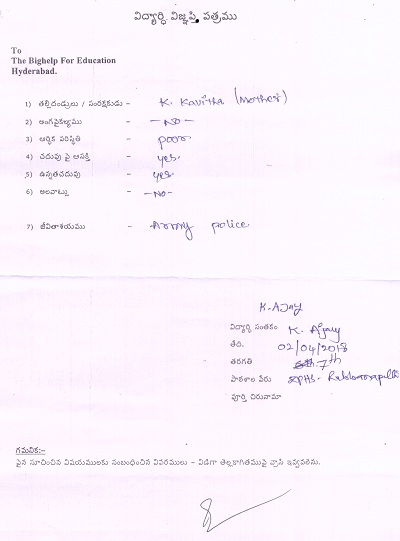 విద్యార్థి విజ్ఞప్తి పత్రము
To
The Bighelp For Education
Hyderabad.
1) తల్లిదండ్రులు / సంరక్షకుడు - K. Kavitha (Mother)
2) అంగవైకల్యము - -No-
3) ఆర్థిక పరిస్థితి - poor
4) చదువు పై ఆసక్తి - yes
5) ఉన్నతచదువు - yes
6) అలవాట్లు - -No-
7) జీవితాశయము - Army police
K. AJAY
విద్యార్థి సంతకం K. Ajay
తేది. 02/04/2018
తరగతి 7th
పాఠశాల పేరు ZPHS-
పూర్తి చిరునామా
గమనిక:-
పైన సూచించిన విషయములకు సంబంధించిన వివరములు - విడిగా తెల్లకాగితముపై వ్రాసి ఇవ్వవలెను.